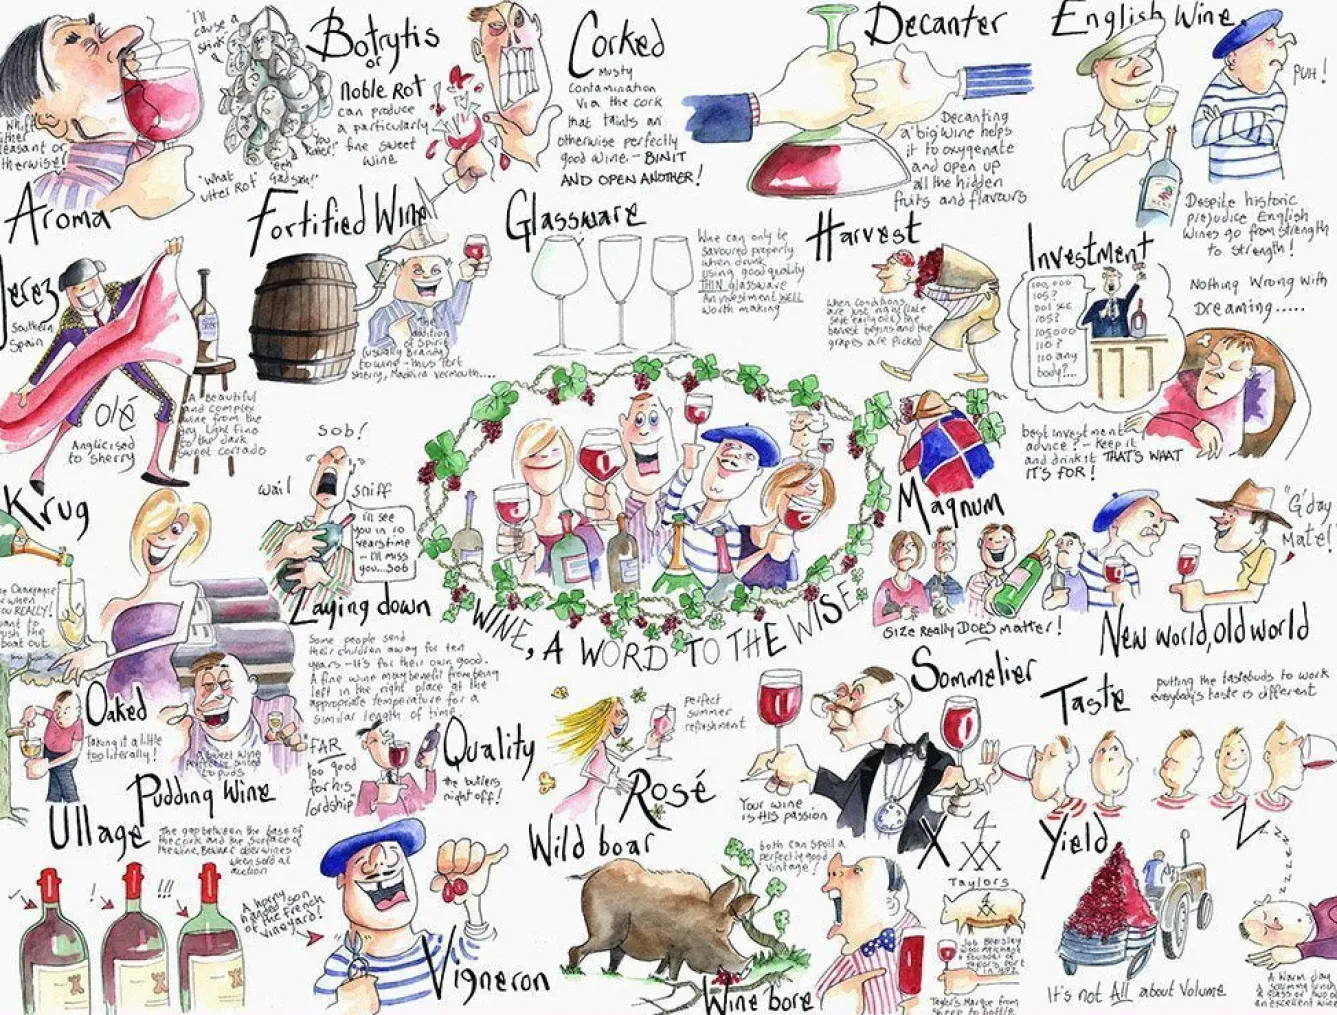 "I'll
cause a
stink"
Botrytis
or
Noble Rot
can produce
a particularly
fine sweet
wine
"What
utter Rot"
Aroma
Corked
Musty
contamination
via the cork
that taints an
otherwise perfectly
good wine - BIN IT
AND OPEN ANOTHER!
Decanter
Decanting
a 'big' wine helps
it to oxygenate
and open up
all the hidden
fruits and flavours
English Wine
PUH!
Despite historic
prejudice English
wines go from strength
to strength!
Jerez
Southern
Spain
Olé
Anglicised
to sherry
A beautiful
and complex
wine from the
light fino
to the dark
sweet
Fortified Wine
The
addition
of spirit
(usually Brandy)
to wine - thus Port
Sherry, Madeira Vermouth....
Glassware
Wine can only be
savoured properly
when drunk
using good quality
THIN glassware
An investment WELL
worth making
Harvest
When conditions
are just right
harvest begins and the
grapes are picked
Investment
100,000
105?
105?
105000
110?
110 any
body?...
Nothing Wrong with
Dreaming.....
best investment
advice? - keep it
and drink it THAT'S WHAT
IT'S FOR!
Krug
REALLY!
want to
push the
boat out
sob!
wail
sniff
I'll see
you in 10
years time
- I'll miss
you...sob
Laying down
Some people send
their children away for ten
years - it's for their own good.
A fine wine may benefit from being
left in the right place at the
appropriate temperature for a
similar length of time
WINE, A WORD TO THE WISE
Magnum
Size Really DOES matter!
"G'day
Mate!
New world, old world
Oaked
Taking it a little
too literally!
Pudding Wine
a sweet wine
perfectly suited
to puds
"FAR
too good
for his
lordship"
Quality
the butlers
night off!
perfect
summer
refreshment
Rosé
Sommelier
Your wine
is HIS passion
Taste
putting the tastebuds to work
everybody's taste is different
Ullage
The gap between the base of
the cork and the surface of
the wine, Beware older wines
when sold at
auction
!
!!!
A horny
handed son
of the French
vineyard!
Vigneron
Wild boar
both can spoil a
perfectly good
vintage!
Wine bore
X
4
XX
Taylors
4
XX
Job Bearsley
founder of
Taylor's Port
in 1692
Taylors Marque from
sheep to bottle
Yield
It's not All about Volume
Zzzzzz
A warm day
a glass or two of
an excellent wine